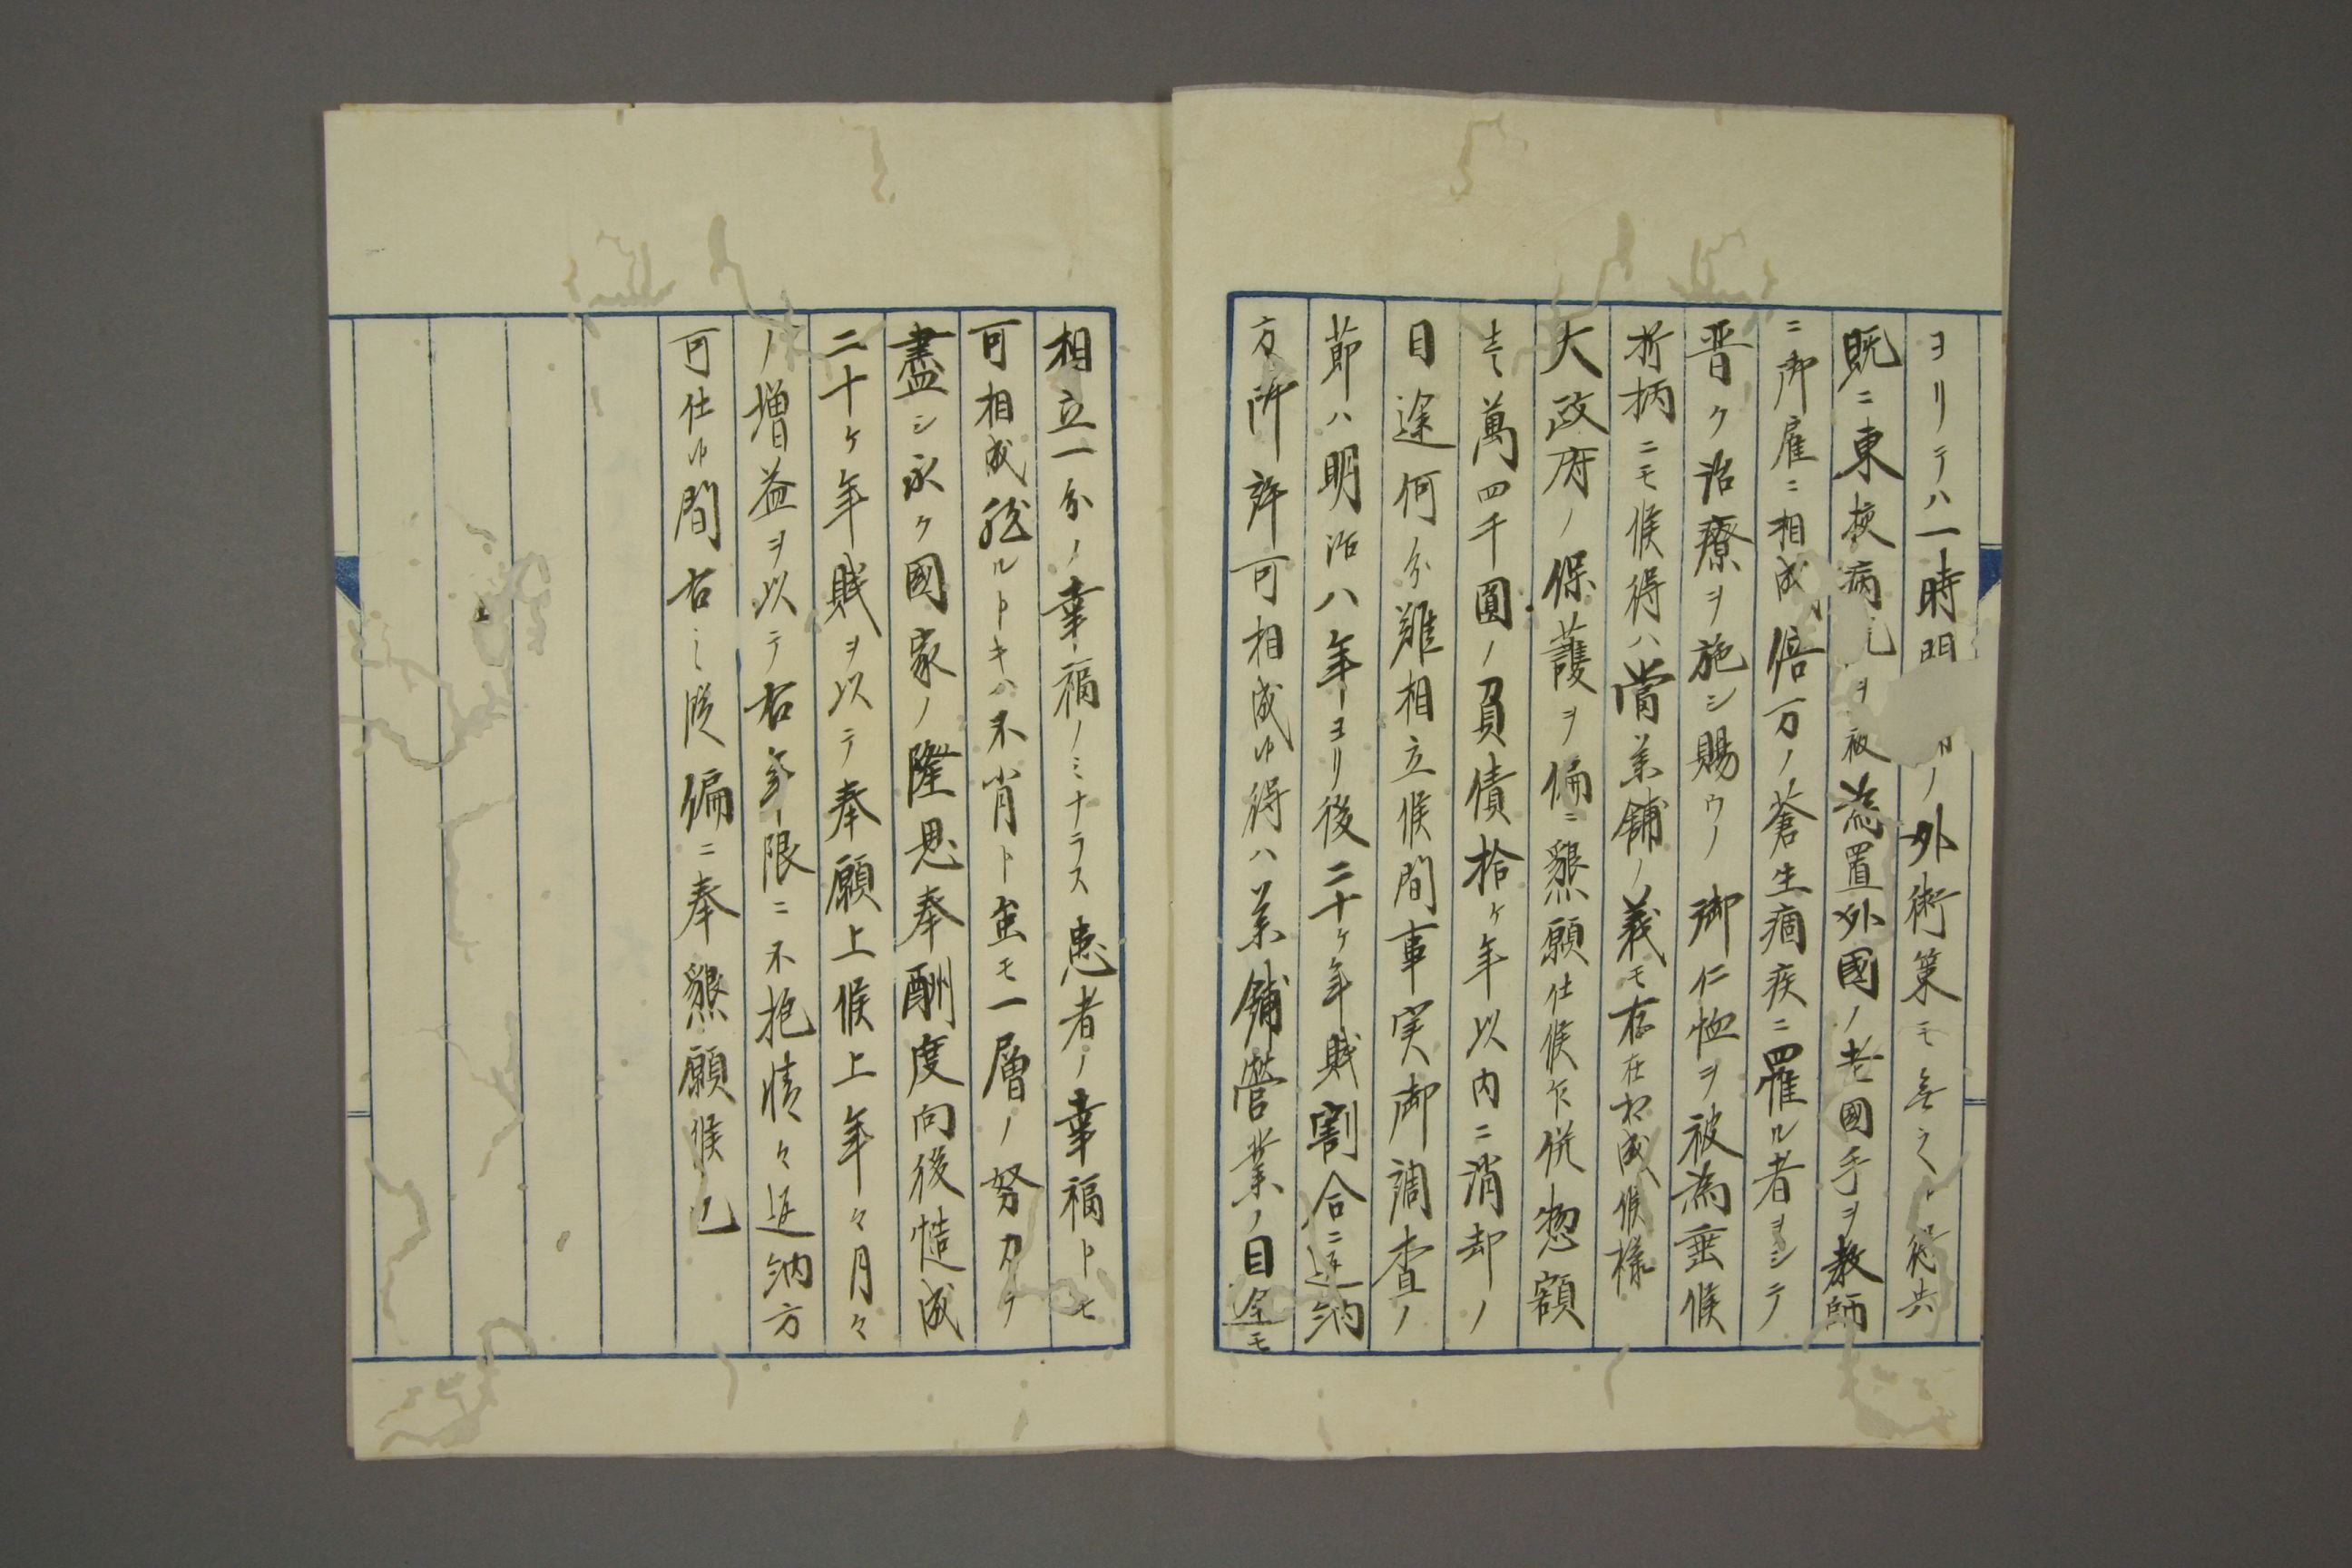 ヨリテハ一時間ノ外術策モ無之候共
既ニ東校病ヲ被為置外國ノ老國手ヲ教師
ニ御雇ニ相成倍万ノ蒼生痼疾ニ罹ル者ヲシテ
晋ク治療ヲ施シ賜ウノ御仁恤ヲ被為垂候
折柄ニモ候得ハ當業舗ノ義モ存在相成候様
大政府ノ保護ヲ偏ニ懇願仕候乍併惣額
壱萬四千圓ノ負債拾ヶ年以内ニ消却ノ
目途何分難相立候間事実御調査ノ
節ハ明治八年ヨリ後二十ヶ年賦割合ニ返納
方御許可相成候得ハ業舗營業ノ目途モ
相立一分ノ幸福ノミナラス患者ノ幸福トモ
可相成然ルトキハ不肖ト虽モ一層ノ努力ヲ
盡シ永ク國家ノ隆恩奉酬度向後慥成
二十ヶ年賦ヲ以テ奉願上候上年々月々
ノ増益ヲ以テ右年限ニ不抱精々返納方
可仕候間右之段偏ニ奉懇願候也